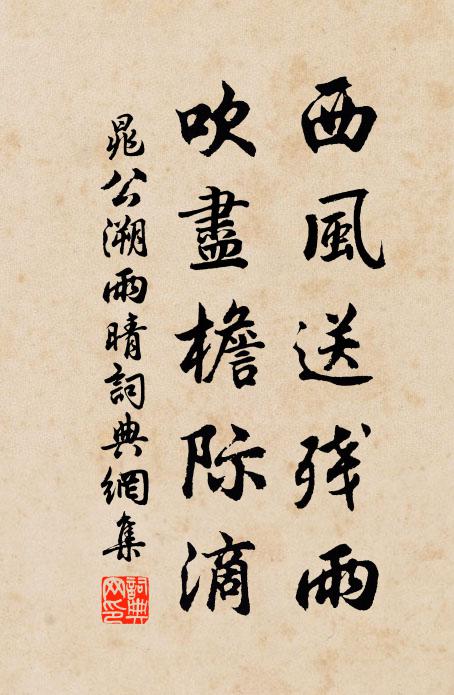 西風送残雨
吹盡檐际滴
晁公溯雨晴詞典網集
詞典